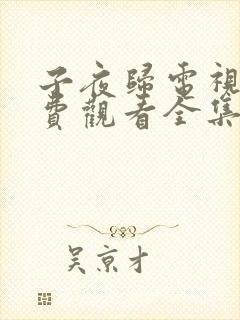 子夜歸電視
費觀看全集
吴京才